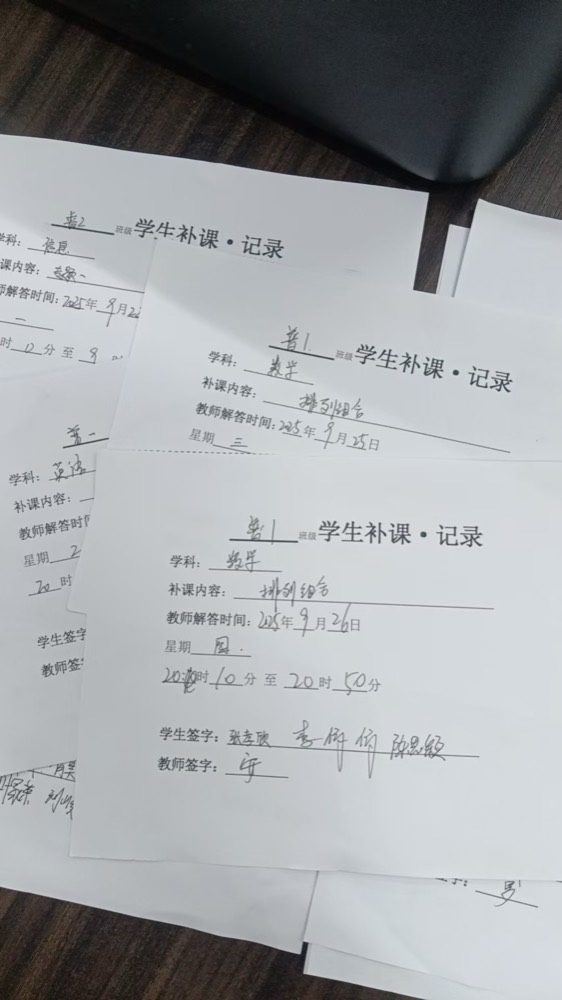 普2 班级 学生补课·记录
学科: 信息
课内容:
师解答时间: 2025年 9月
时 12 分 至 9
普1 班级 学生补课·记录
学科: 数学
补课内容: 排列组合
教师解答时间: 2025年 9月 25日
星期 三
普一
学科: 英语
补课内容:
教师解答时间
星期 2
20 时
学生签字
教师签
普1 班级 学生补课·记录
学科: 数学
补课内容: 排列组合
教师解答时间: 2025年 9月 26日
星期 四.
20 时 10 分 至 20 时 50 分
学生签字: 张孝欣 李一 陈思
教师签字: